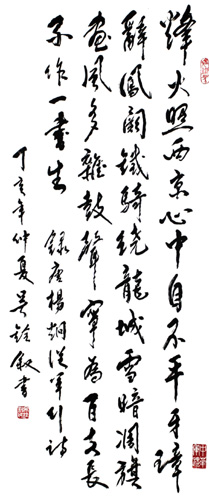 烽火照西京心中自不平牙璋
辭鳳闕鐵騎繞龍城雪暗凋旗
畫風多雜鼓聲寧為百夫長
勝作一書生 錄唐楊炯從軍行詩
丁亥年仲夏吳銓敘書